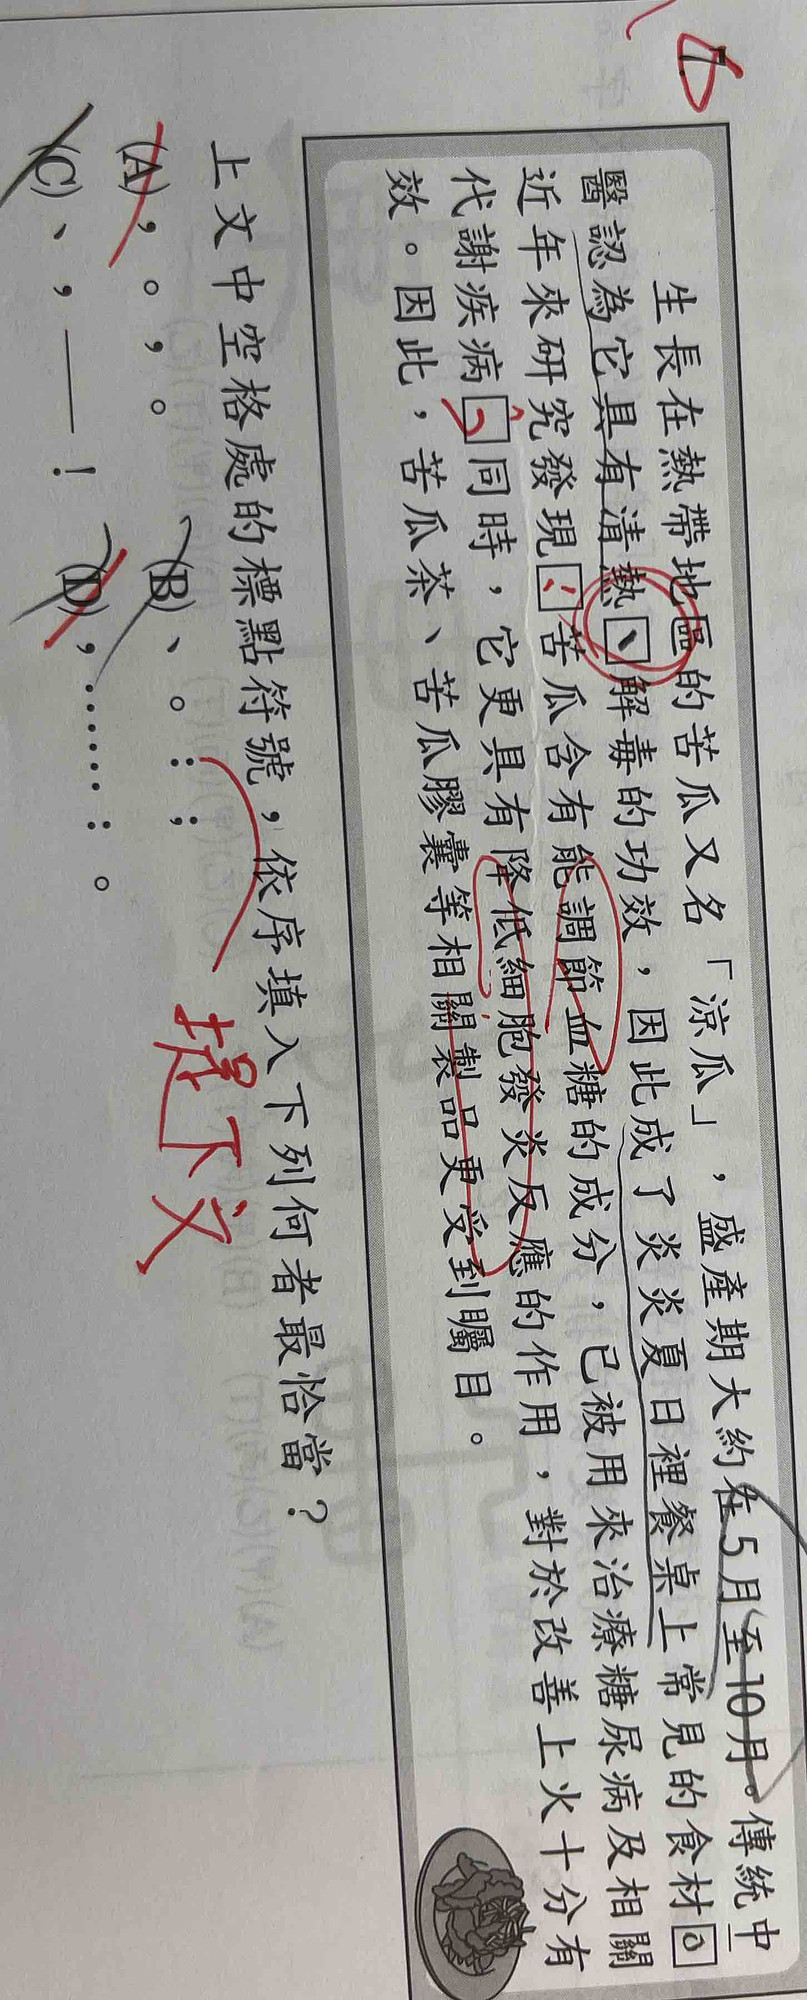 7.
生長在熱帶地區的苦瓜又名「涼瓜」，盛產期大約在5月至10月。傳統中
醫認為它具有清熱、解毒的功效，因此成了炎炎夏日裡餐桌上常見的食材。
近年來研究發現：苦瓜含有能調節血糖的成分，已被用來治療糖尿病及相關
代謝疾病；同時，它更具有降低細胞發炎反應的作用，對於改善上火十分有
效。因此，苦瓜茶、苦瓜膠囊等相關製品更受到矚目。
上文中空格處的標點符號，依序填入下列何者最恰當？
(A)，。，。 (B)、。：；
(C)、，——！ (D)，……：。
提下文